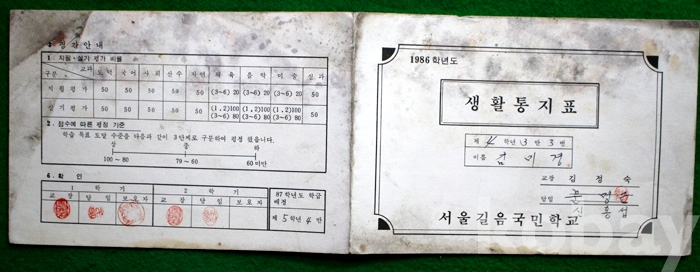 평가안내
1. 지필·실기 평가 비율
구분 교과 도덕 국어 사회 산수 자연 체육 음악 미술 실과
지필평가 50 50 50 50 50 (3~6) 20 (3~6) 20 (3~6) 20 50
실기평가 50 50 50 50 50 (1,2)100 (3~6) 80 (1,2)100 (3~6) 80 (1,2)100 (3~6) 80 50
2. 점수에 따른 평정 기준
학습 목표 도달 수준을 다음과 같이 3단계로 구분하여 평정 했습니다.
상 중 하
100~80 79~60 60미만
6. 확인
1 학기 2 학기 87학년도 학급 배정
교장 담임 보호자 교장 담임 보호자
제 5 학년 4 반
1986학년도
생활통지표
제 4 학년 3 반 3 번
이름 김미경
교장 김정숙
담임
서울길음국민학교
kobay